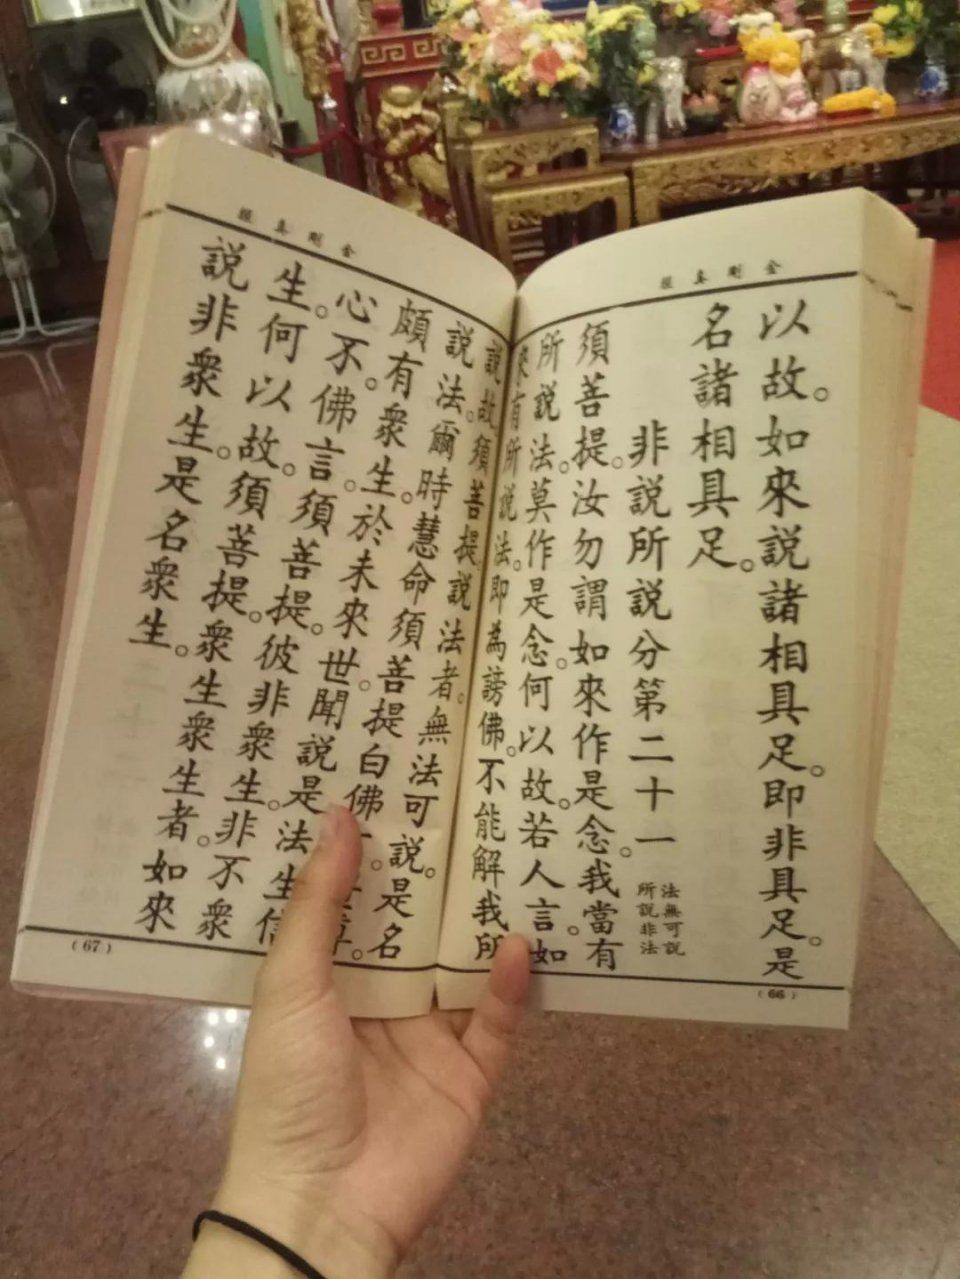 金剛真經
以故。如來說諸相具足。即非具足。是
名諸相具足。
非說所說分第二十一
法無可說
所說非法
須菩提。汝勿謂如來作是念。我當有
所說法。莫作是念。何以故。若人言。如
來有所說法。即為謗佛。不能解我所
(66)
金剛真經
說故。須菩提。說法者。無法可說。是名
說法。爾時慧命須菩提白佛尊。
頗有衆生。於未來世。聞說是法生信
心不。佛言。須菩提。彼非衆生。非不衆
生。何以故。須菩提。衆生衆生者。如來
說非衆生。是名衆生。
(67)